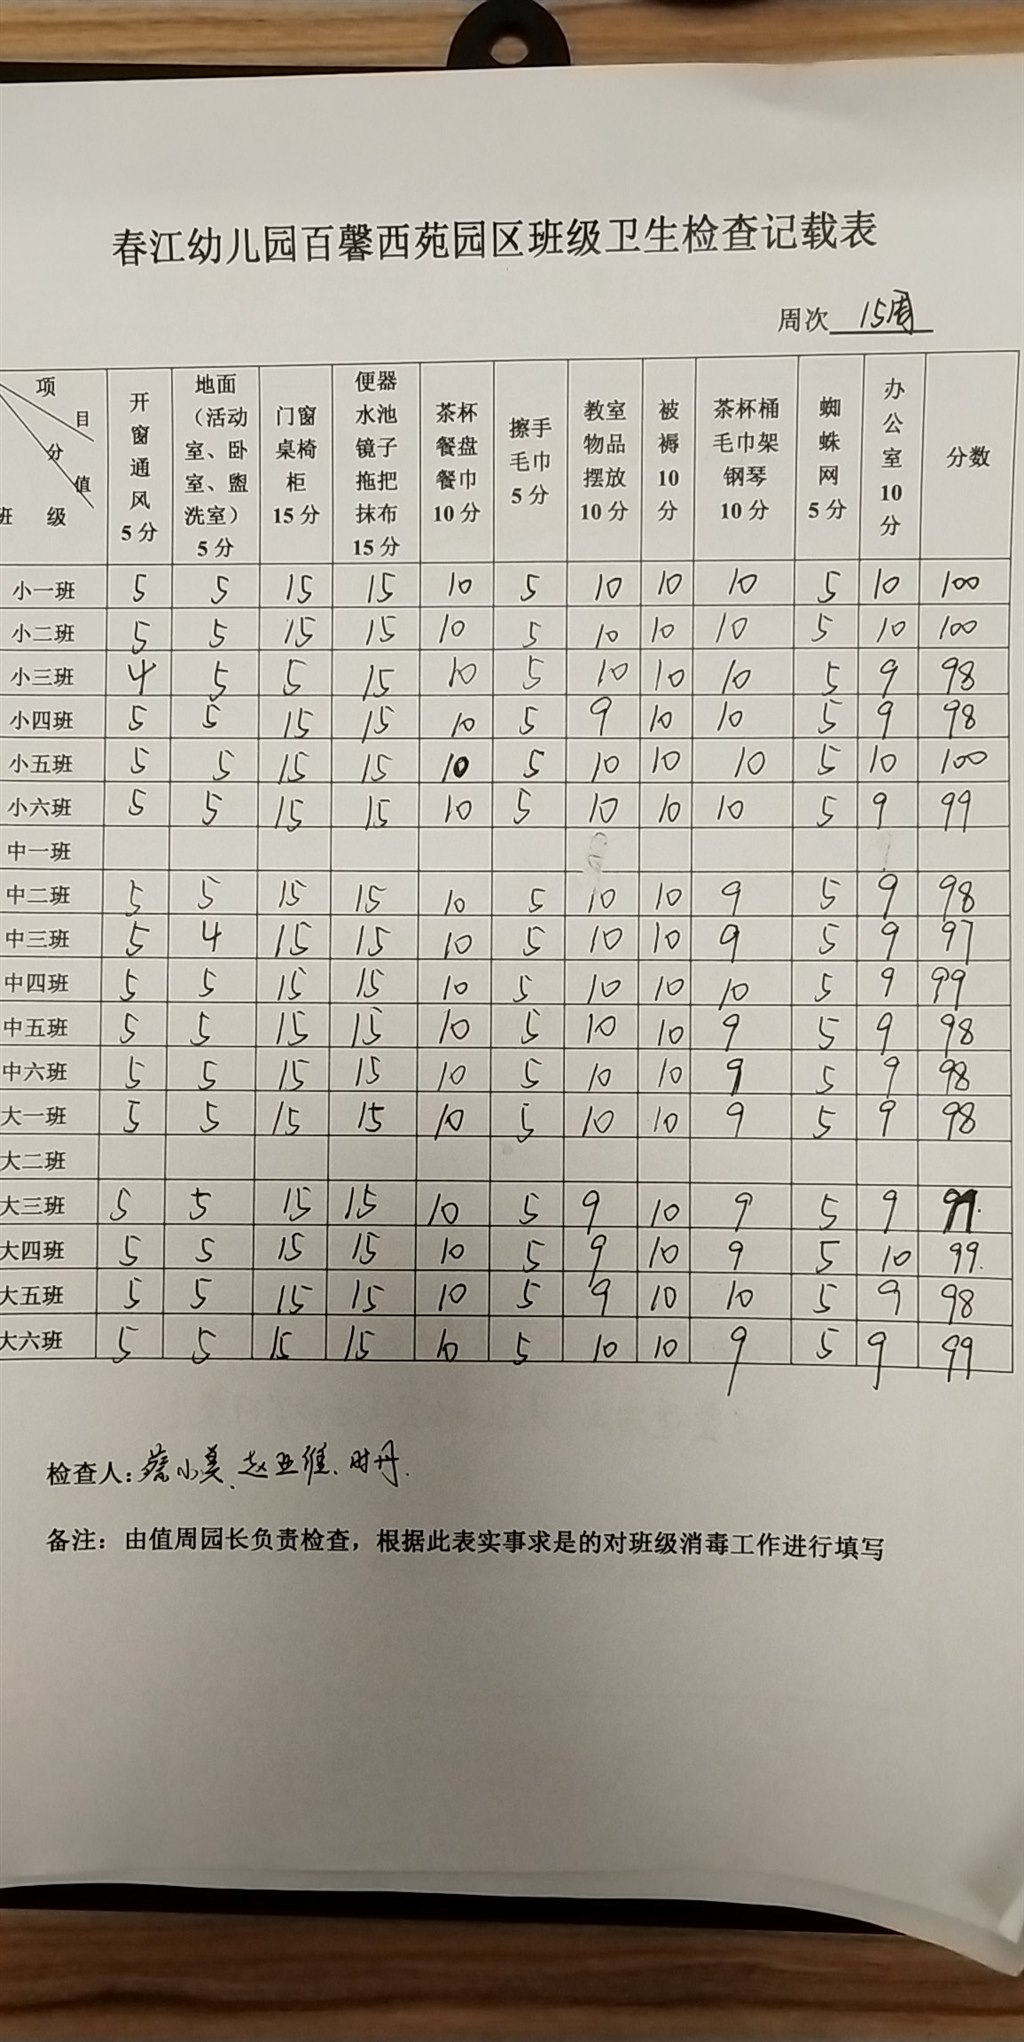 春江幼儿园百馨西苑园区班级卫生检查记载表
周次 15周
项目 分值 班级 开窗通风5分 地面（活动室、卧室、盥洗室）5分 门窗桌椅柜15分 便器水池镜子拖把抹布15分 茶杯餐盘餐巾10分 擦手毛巾5分 教室物品摆放10分 被褥10分 茶杯桶毛巾架钢琴10分 蜘蛛网5分 办公室10分 分数
小一班 5 5 15 15 10 5 10 10 10 5 10 100
小二班 5 5 15 15 10 5 10 10 10 5 10 100
小三班 4 5 5 15 10 5 10 10 10 5 9 98
小四班 5 5 15 15 10 5 9 10 10 5 9 98
小五班 5 5 15 15 10 5 10 10 10 5 10 100
小六班 5 5 15 15 10 5 10 10 10 5 9 99
中一班
中二班 5 5 15 15 10 5 10 10 9 5 9 98
中三班 5 4 15 15 10 5 10 10 9 5 9 97
中四班 5 5 15 15 10 5 10 10 10 5 9 99
中五班 5 5 15 15 10 5 10 10 9 5 9 98
中六班 5 5 15 15 10 5 10 10 9 5 9 98
大一班 5 5 15 15 10 5 10 10 9 5 9 98
大二班
大三班 5 5 15 15 10 5 9 10 9 5 9
大四班 5 5 15 15 10 5 9 10 9 5 10 99.
大五班 5 5 15 15 10 5 9 10 10 5 9 98
大六班 5 5 15 15 10 5 10 10 9 5 9 99
检查人：蔡小美、赵亚维、时丹.
备注：由值周园长负责检查，根据此表实事求是的对班级消毒工作进行填写